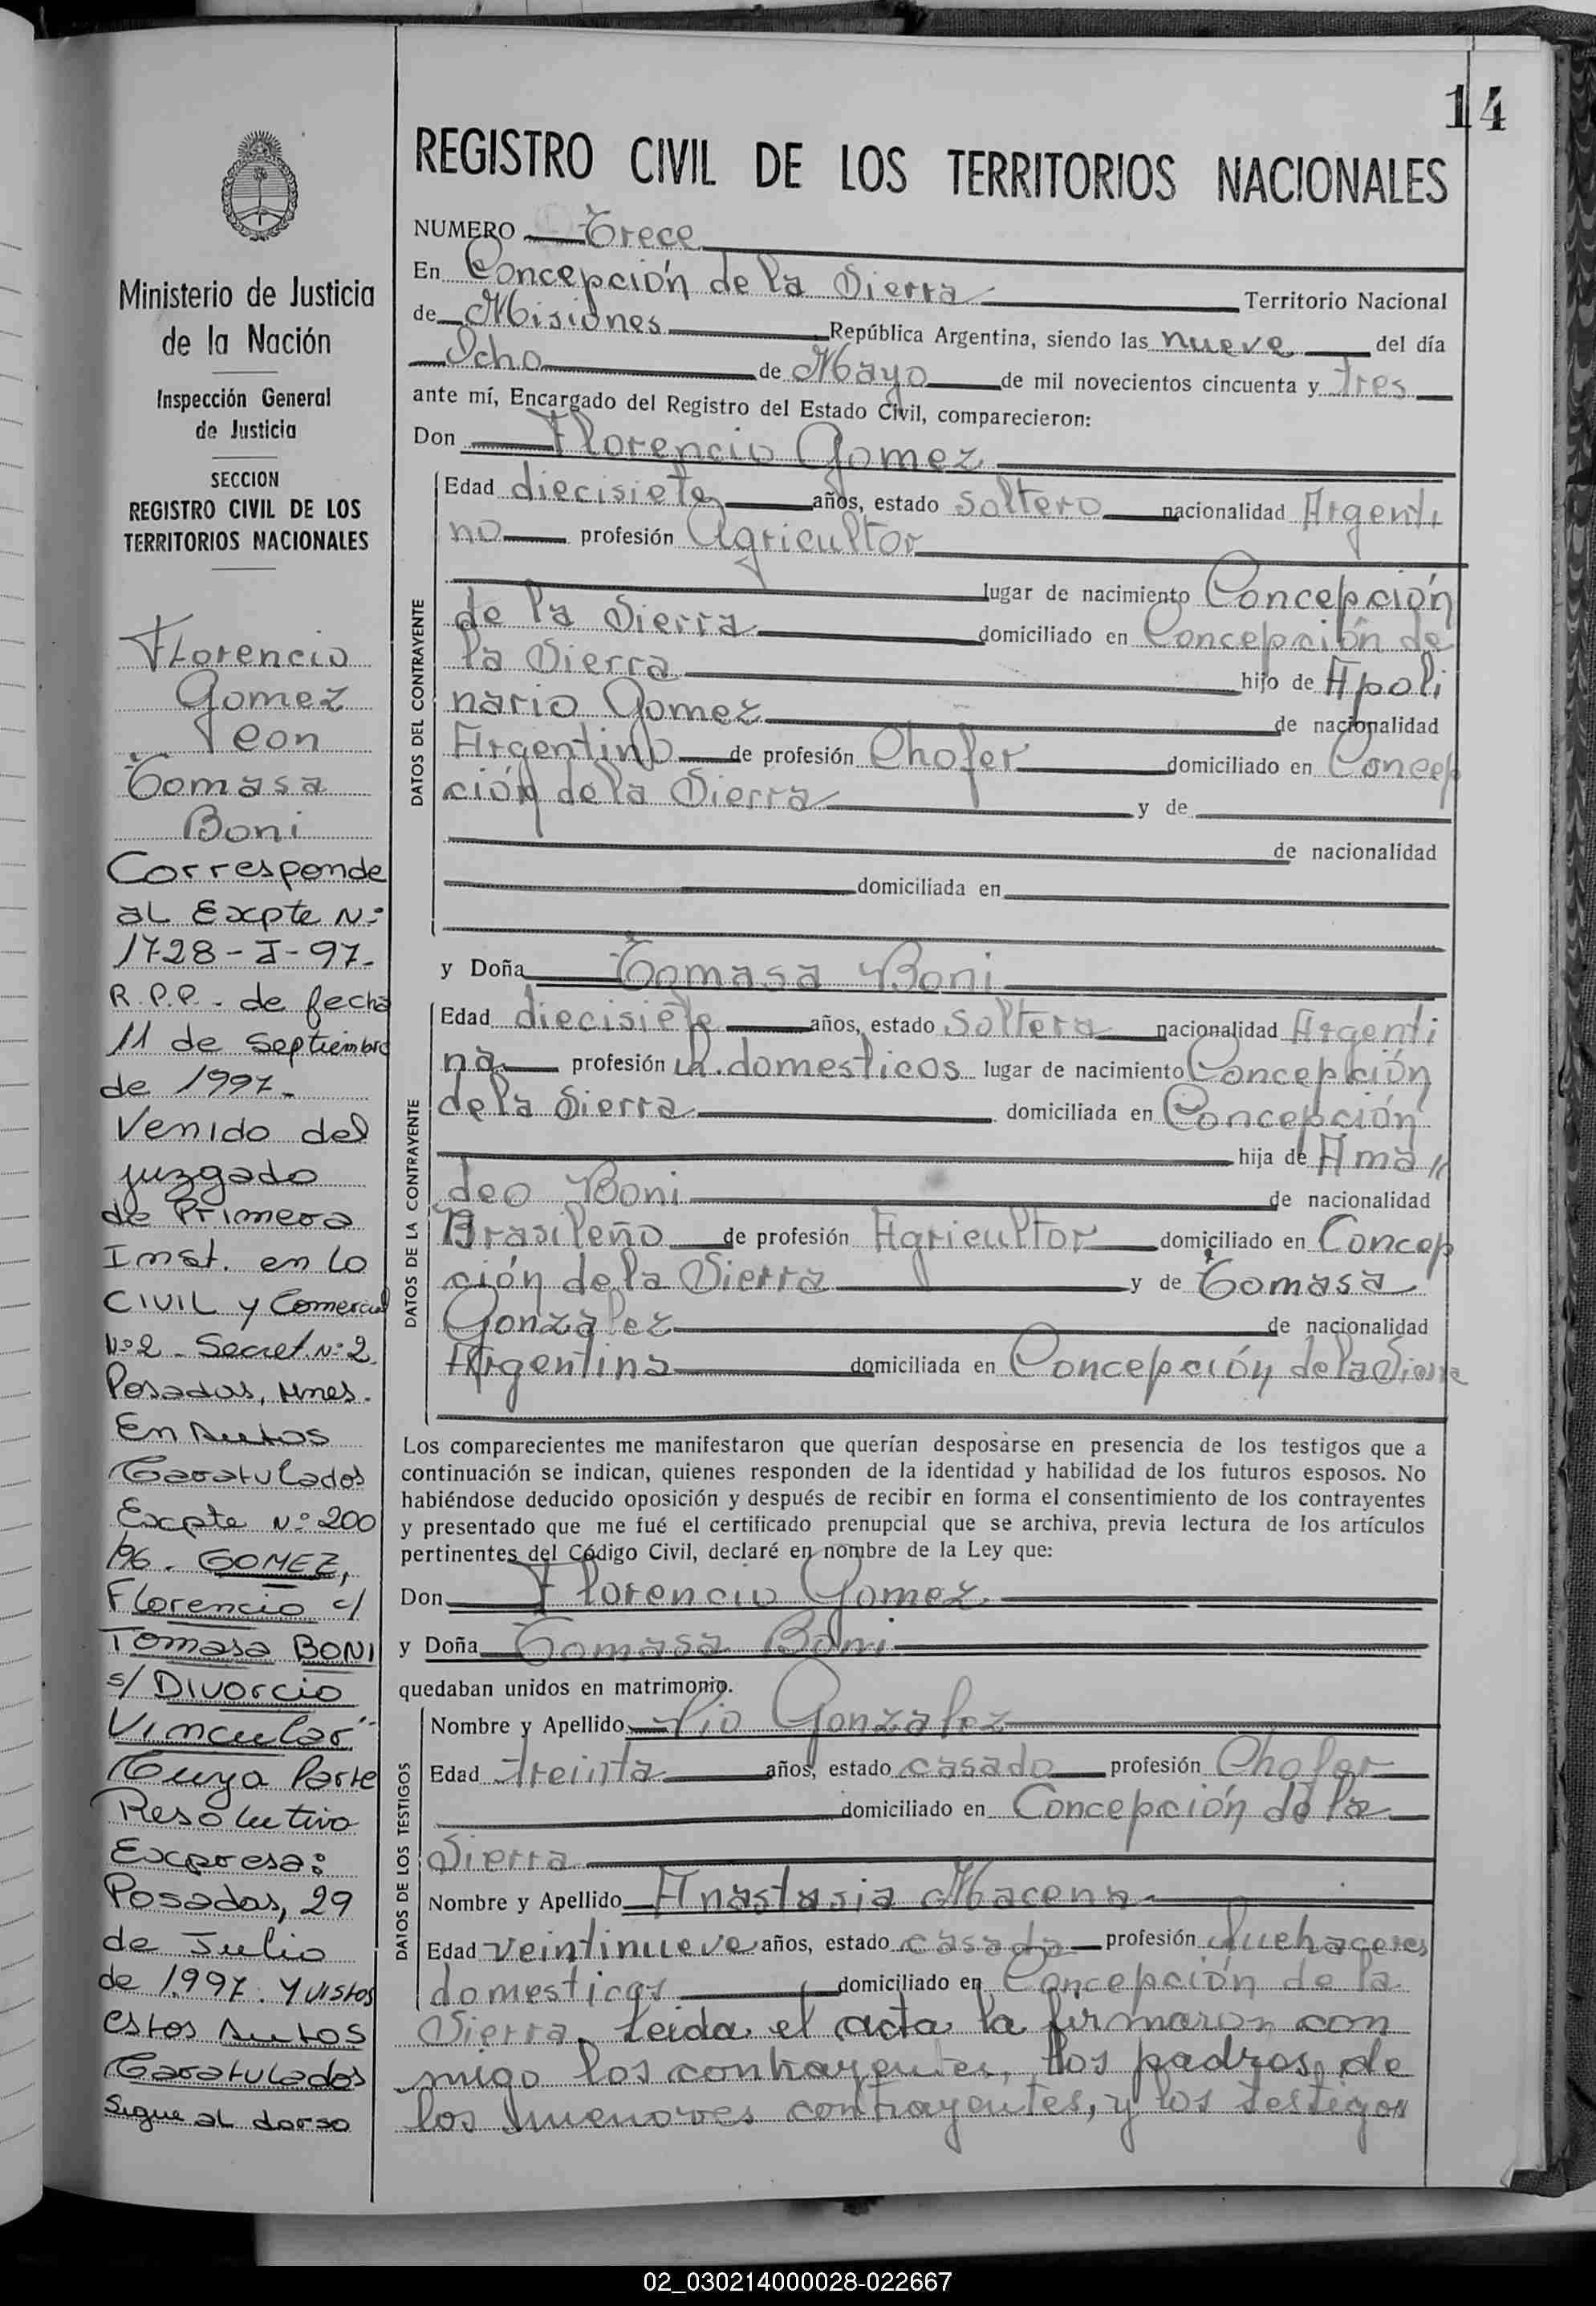 14
Ministerio de Justicia
de la Nación
Inspección General
de Justicia
SECCION
REGISTRO CIVIL DE LOS
TERRITORIOS NACIONALES
Florencio
Gomez
con
Tomasa
Boni
Corresponde
al Expte N:
1728-J-97-
R.P.P. - de fecha
11 de Septiembre
de 1997-
Venido del
juzgado
de Primera
Inst. en Lo
CIVIL y Comercial
Nº2 - Secret. Nº2
Posadas, Mnes.
En Autos
Caratulados
Expte Nº 200
/96. GOMEZ,
Florencio c/
Tomasa BONI
s/ Divorcio
Vincular"
Cuya Parte
Resolutiva
Expresa:
Posadas, 29
de Julio
de 1.997. Y VISTOS
estos Autos
Caratulados
Sigue al dorso
REGISTRO CIVIL DE LOS TERRITORIOS NACIONALES
NUMERO Trece
En Concepción de la Sierra Territorio Nacional
de Misiones República Argentina, siendo las nueve del día
Ocho de Mayo de mil novecientos cincuenta y tres
ante mí, Encargado del Registro del Estado Civil, comparecieron:
Don Florencio Gomez
DATOS DEL CONTRAYENTE
Edad diecisiete años, estado soltero nacionalidad Argenti
no profesión Agricultor
lugar de nacimiento Concepción
de la Sierra domiciliado en Concepción de
la Sierra hijo de Apoli
nario Gomez de nacionalidad
Argentino de profesión Chofer domiciliado en Concep
ción de la Sierra y de
de nacionalidad
domiciliada en
y Doña Tomasa Boni
DATOS DE LA CONTRAYENTE
Edad diecisiete años, estado soltera nacionalidad Argenti
na profesión domesticos lugar de nacimiento Concepción
de la Sierra domiciliada en Concepción
hija de Ama
deo Boni de nacionalidad
Brasileño de profesión Agricultor domiciliado en Concep
ción de la Sierra y de Tomasa
Gonzalez de nacionalidad
Argentina domiciliada en Concepción de la Sierra
Los comparecientes me manifestaron que querían desposarse en presencia de los testigos que a
continuación se indican, quienes responden de la identidad y habilidad de los futuros esposos. No
habiéndose deducido oposición y después de recibir en forma el consentimiento de los contrayentes
y presentado que me fué el certificado prenupcial que se archiva, previa lectura de los artículos
pertinentes del Código Civil, declaré en nombre de la Ley que:
Don Florencio Gomez
y Doña Tomasa Boni
quedaban unidos en matrimonio.
DATOS DE LOS TESTIGOS
Nombre y Apellido Pio Gonzalez
Edad treinta años, estado casado profesión Chofer
domiciliado en Concepción de la
Sierra
Nombre y Apellido Anastasia Macena
Edad veintinueve años, estado casada profesión Quehaceres
domesticos domiciliado en Concepción de la
Sierra. Leida el acta la firmaron con
migo los contrayentes, los padres de
los menores contrayentes, y los testigos
02_030214000028-022667